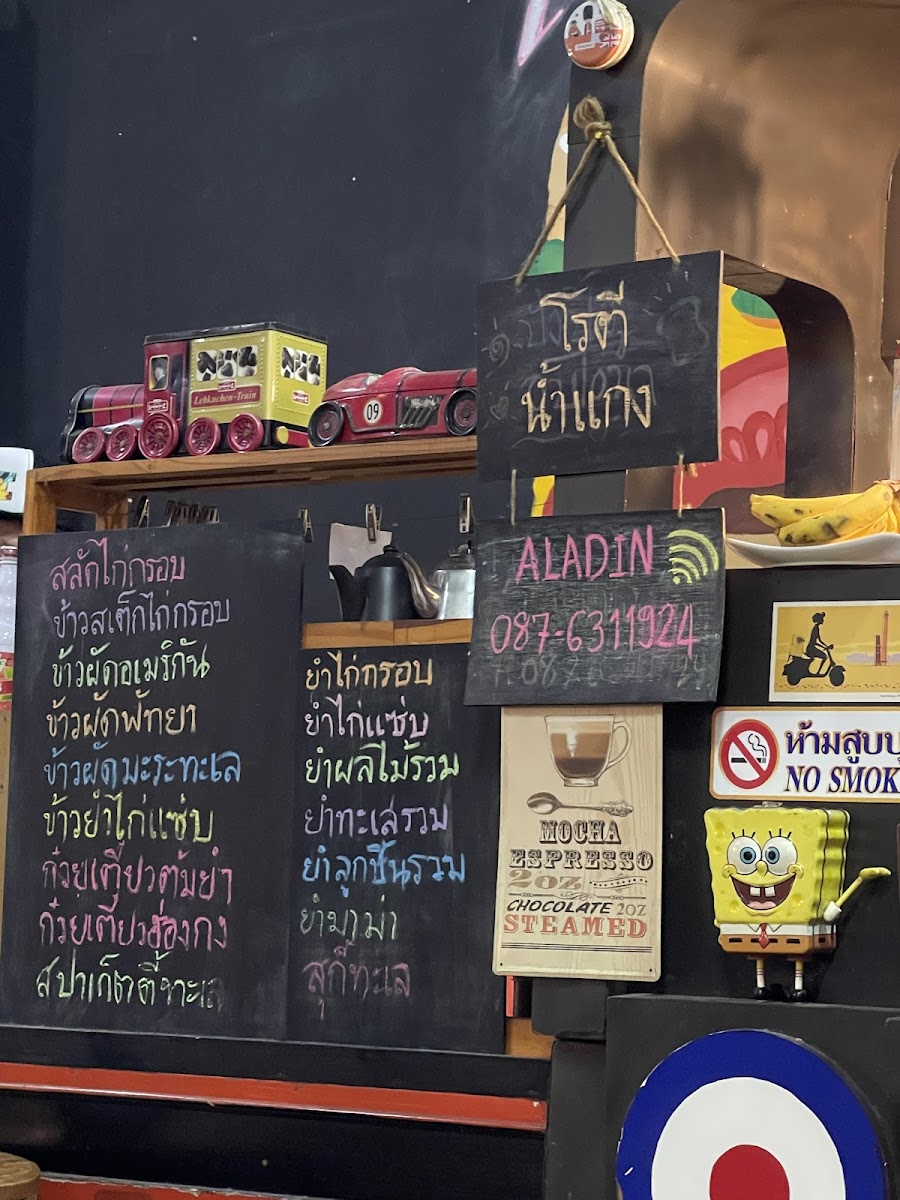 Lebkuchen-Train
09
โรตี
น้ำแกง
ALADIN
087-6311924
สลัดไก่กรอบ
ข้าวสเต็กไก่กรอบ
ข้าวผัดอเมริกัน
ข้าวผัดพัทยา
ข้าวผัดมะระทะเล
ข้าวยำไก่แซ่บ
ก๋วยเตี๋ยวต้มยำ
ก๋วยเตี๋ยวฮ่องกง
ยำไก่กรอบ
ยำไก่แซ่บ
ยำผลไม้รวม
ยำทะเลรวม
ยำลูกชิ้นรวม
ยำมาม่า
สุกี้ทะเล
MOCHA
ESPRESSO
2OZ
CHOCOLATE 2OZ
STEAMED
ห้ามสูบบุ
NO SMOK